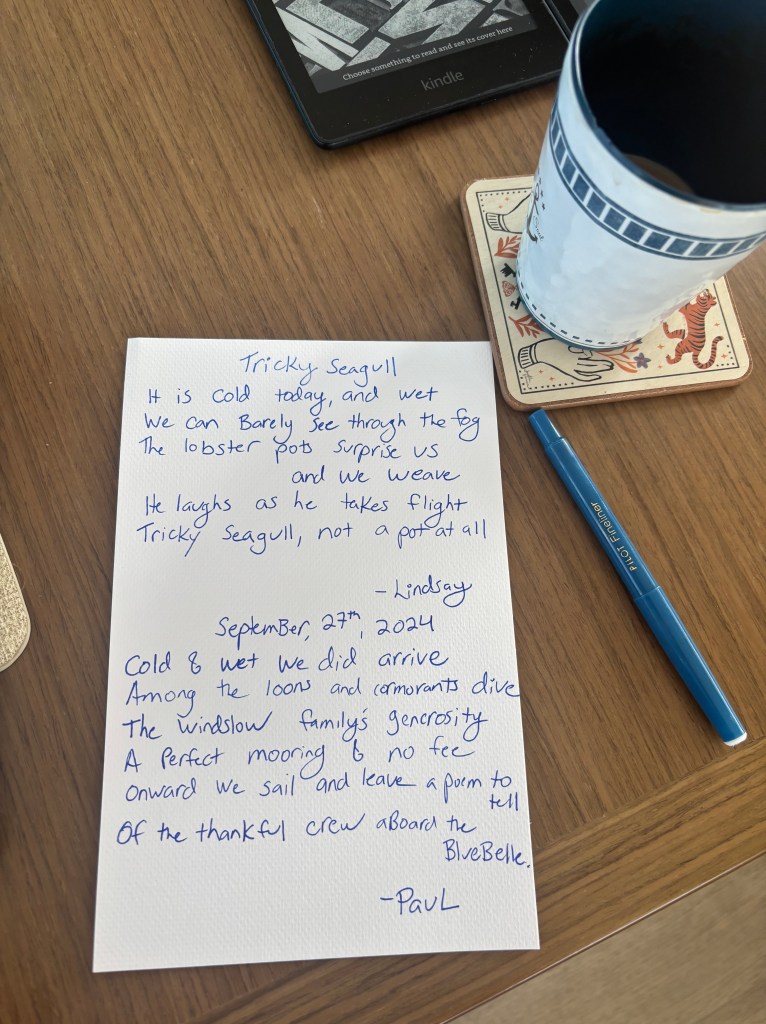 Choose something to read and see its cover here
kindle
Tricky Seagull
It is cold today, and wet
We can Barely see through the fog
The lobster pots surprise us
and we weave
He laughs as he takes flight
Tricky Seagull, not a pot at all
- Lindsay
September, 27th, 2024
Cold & wet we did arrive
Among the loons and cormorants dive
The Windslow family's generosity
A Perfect mooring & no fee
Onward we sail and leave a poem to
tell
Of the thankful crew aBoard the
BlueBelle.
- Paul
PILOT Fineliner